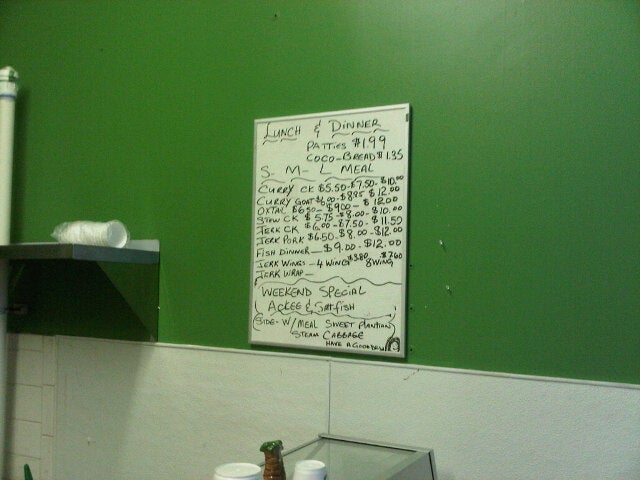 LUNCH & DINNER
PATTIES $1.99
COCO-BREAD $1.35
S. M- L MEAL
CURRY CK $5.50-$7.50-$10.00
CURRY GOAT $6.00-$8.95 $12.00
OXTAIL $6.50-$9.00- $12.00
STEW CK $5.75-$8.00-$10.00
JERK CK $6.00-$7.50-$11.50
JERK PORK $6.50-$8.00-$12.00
FISH DINNER-$9.00-$12.00
JERK WINGS-4 WING $3.80 8 WING $7.60
JERK WRAP-
WEEKEND SPECIAL
ACKEE & SALTFISH
SIDE- W/MEAL SWEET PLANTIAN
STEAM CABBAGE
HAVE A GOOD DAY